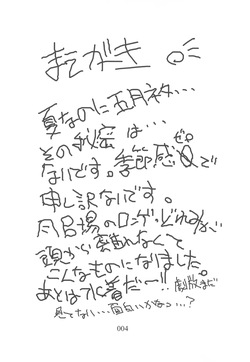 まえがき
夏なのに五月ネタ…
その秘密は…
ないです。季節感0で
ゼロ
申し訳ないです。
月居場のロンゲ・どれみが
頭から離れなくて
こんなものになりました。
あとは水着だー!! 劇版まだ
見てない…面白いかなっ…?
004